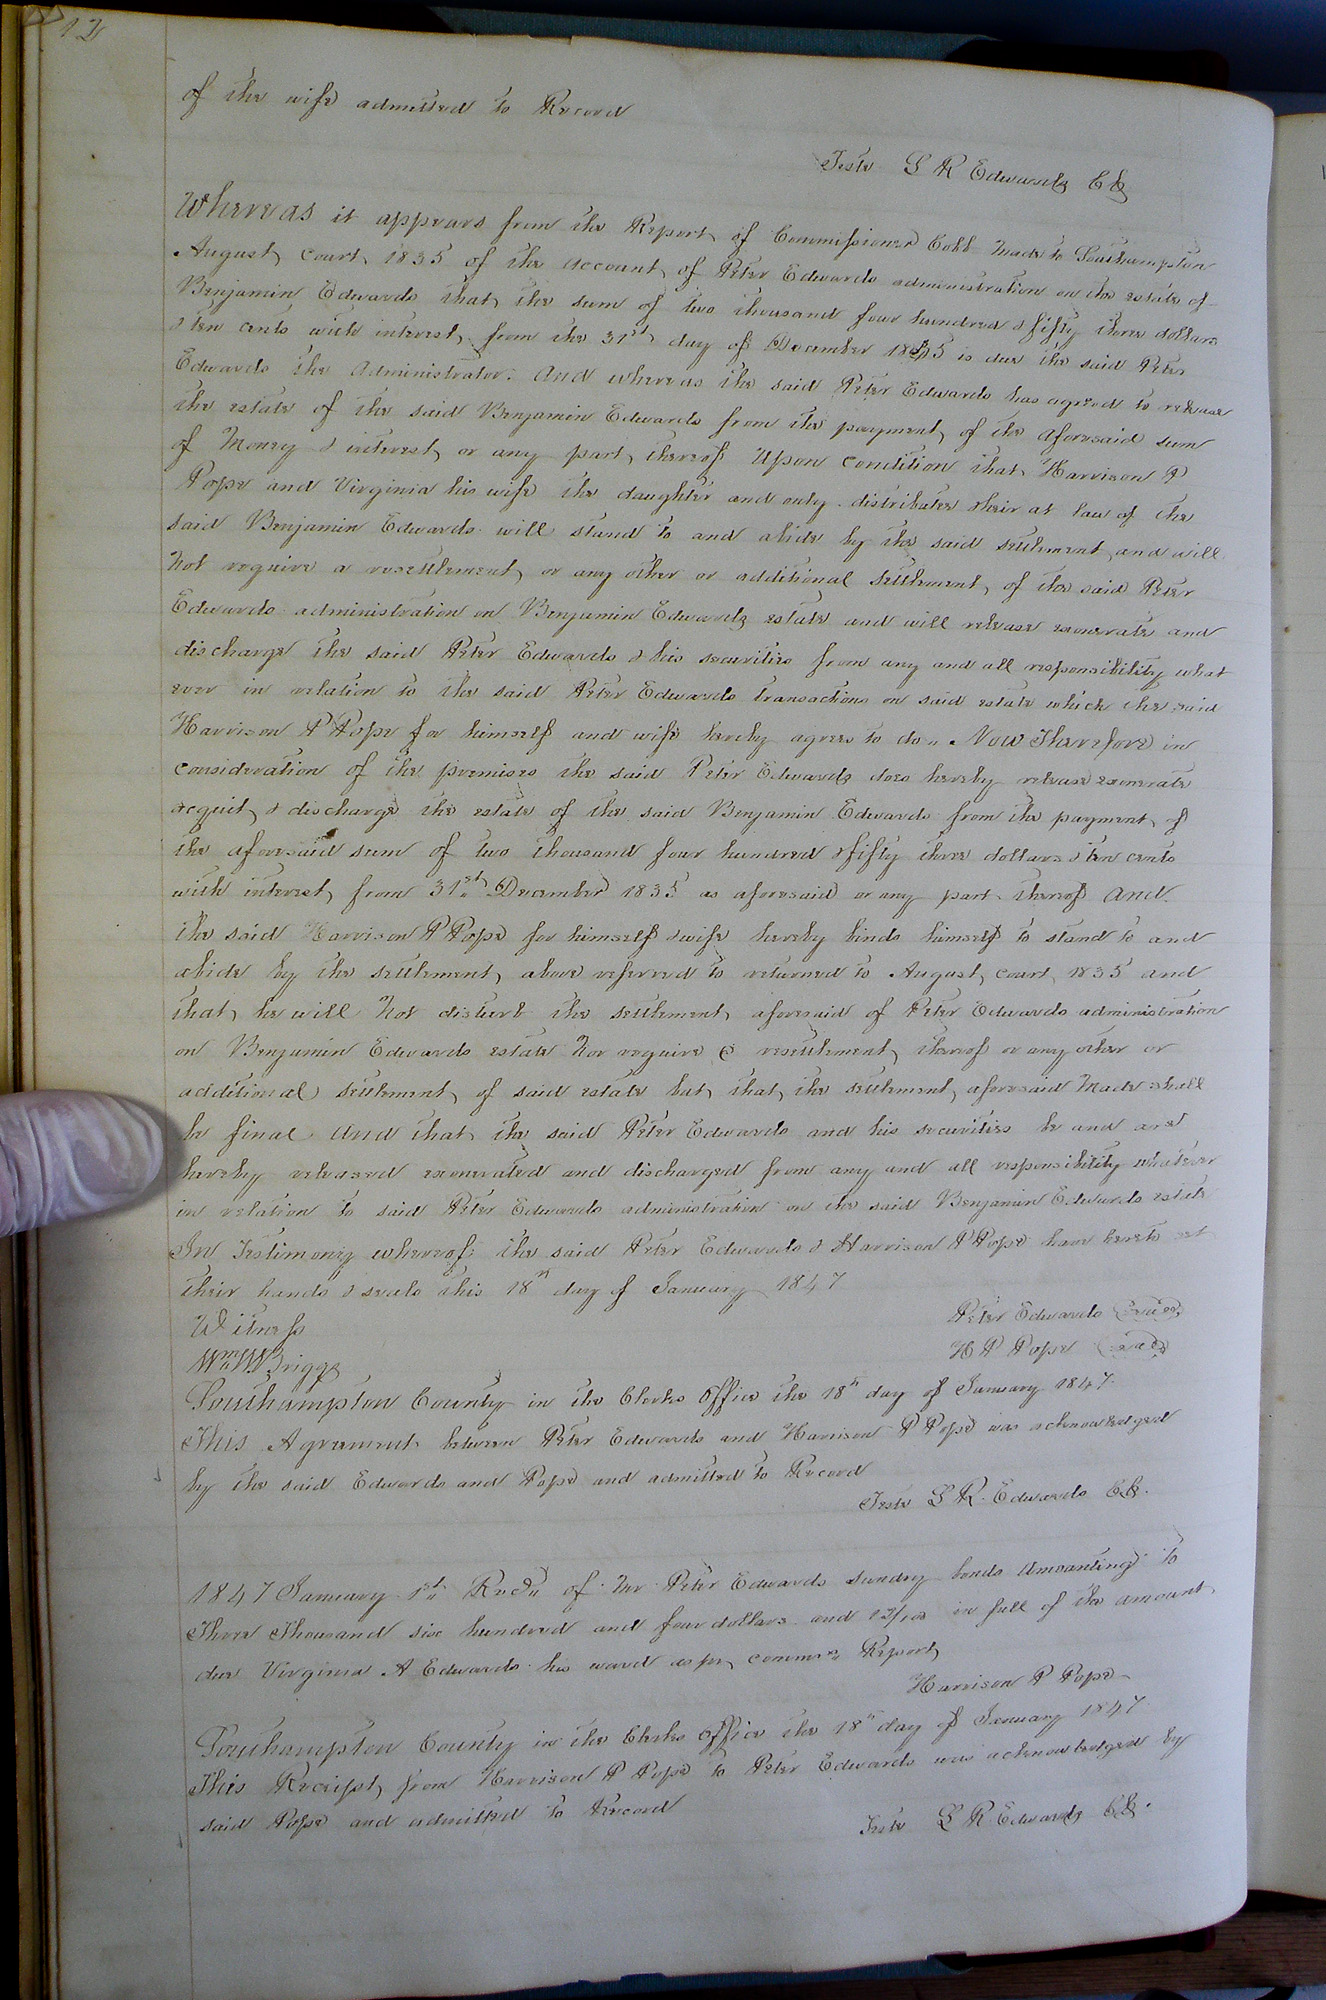 12
of the wife admitted to Record
Teste L R Edwards CC
Whereas it appears from the Report of Commissioner Cobb made to Southampton
August court 1835 of the account of Peter Edwards administration on the estate of
Benjamin Edwards that the sum of two thousand four hundred & fifty three dollars
& ten cents with interest from the 31st day of December 1835 is due the said Peter
Edwards the Administrator. And whereas the said Peter Edwards has agreed to release
the estate of the said Benjamin Edwards from the payment of the aforesaid sum
of Money & interest or any part thereof Upon condition that Harrison P
Pope and Virginia his wife the daughter and only distributee & heir at law of the
said Benjamin Edwards will stand to and abide by the said settlement and will
not require a resettlement or any other or additional settlement of the said Peter
Edwards administration on Benjamin Edwards estate and will release exonerate and
discharge the said Peter Edwards & his securities from any and all responsibility what
ever in relation to the said Peter Edwards transactions on said estate which the said
Harrison P Pope for himself and wife hereby agrees to do. Now Therefore in
consideration of the premises the said Peter Edwards does hereby release exonerate
acquit & discharge the estate of the said Benjamin Edwards from the payment of
the aforesaid sum of two thousand four hundred & fifty three dollars & ten cents
with interest from 31st December 1835 as aforesaid or any part thereof And
the said Harrison P Pope for himself & wife hereby binds himself to stand to and
abide by the settlement above referred to returned to August court 1835 and
that he will not disturb the settlement aforesaid of Peter Edwards administration
on Benjamin Edwards estate nor require a resettlement thereof or any other or
additional settlement of said estate but that the settlement aforesaid made shall
be final And that the said Peter Edwards and his securities be and are
hereby released exonerated and discharged from any and all responsibility whatever
in relation to said Peter Edwards administration on the said Benjamin Edwards estate
In Testimony whereof the said Peter Edwards & Harrison P Pope have hereto set
their hands & seals this 18th day of January 1847
Witness
Peter Edwards (seal)
Wm W Briggs
H P Pope (seal)
Southampton County in the Clerks Office the 18th day of January 1847.
This Agreement between Peter Edwards and Harrison P Pope was acknowledged
by the said Edwards and Pope and admitted to Record
Teste L R. Edwards CC.
1847 January 1st Recd of Mr Peter Edwards sundry bonds Amounting to
Three Thousand six hundred and four dollars and 12/100 in full of the amount
due Virginia A Edwards his ward as per commrs Report
Harrison P Pope
Southampton County in the Clerks Office the 18th day of January 1847
This Receipt from Harrison P Pope to Peter Edwards was acknowledged by
said Pope and admitted to Record
Teste L R Edwards CC.